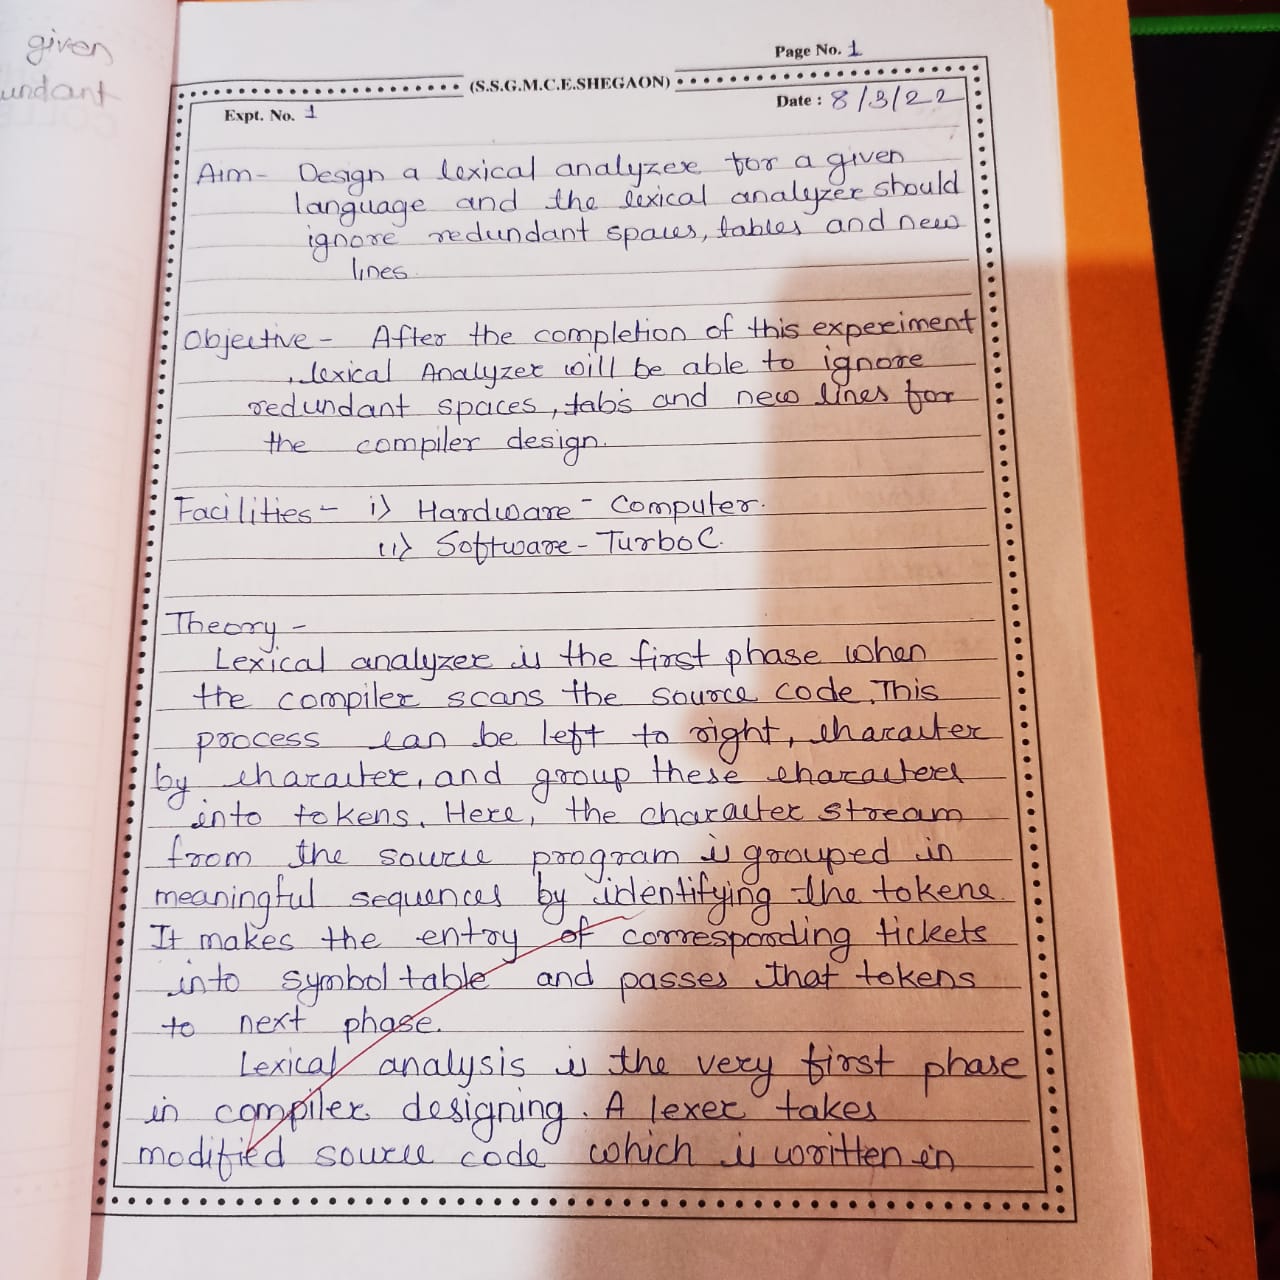 given
undant
Page No. 1
(S.S.G.M.C.E.SHEGAON)
Expt. No. 1
Date : 8/3/22
Aim- Design a lexical analyzer for a given
language and the lexical analyzer should
ignore redundant spaces, tables and new
lines.
Objective - After the completion of this experiment
, lexical Analyzer will be able to ignore
redundant spaces, tabs and new lines for
the compiler design.
Facilities - i) Hardware - Computer.
ii) Software - Turbo C.
Theory -
Lexical analyzer is the first phase when
the compiler scans the source code. This
process can be left to right, character
by character, and group these characters
into tokens. Here, the character stream
from the source program is grouped in
meaningful sequences by identifying the tokens.
It makes the entry of corresponding tickets
into symbol table and passes that tokens
to next phase.
Lexical analysis is the very first phase
in compiler designing. A lexer takes
modified source code which is written in